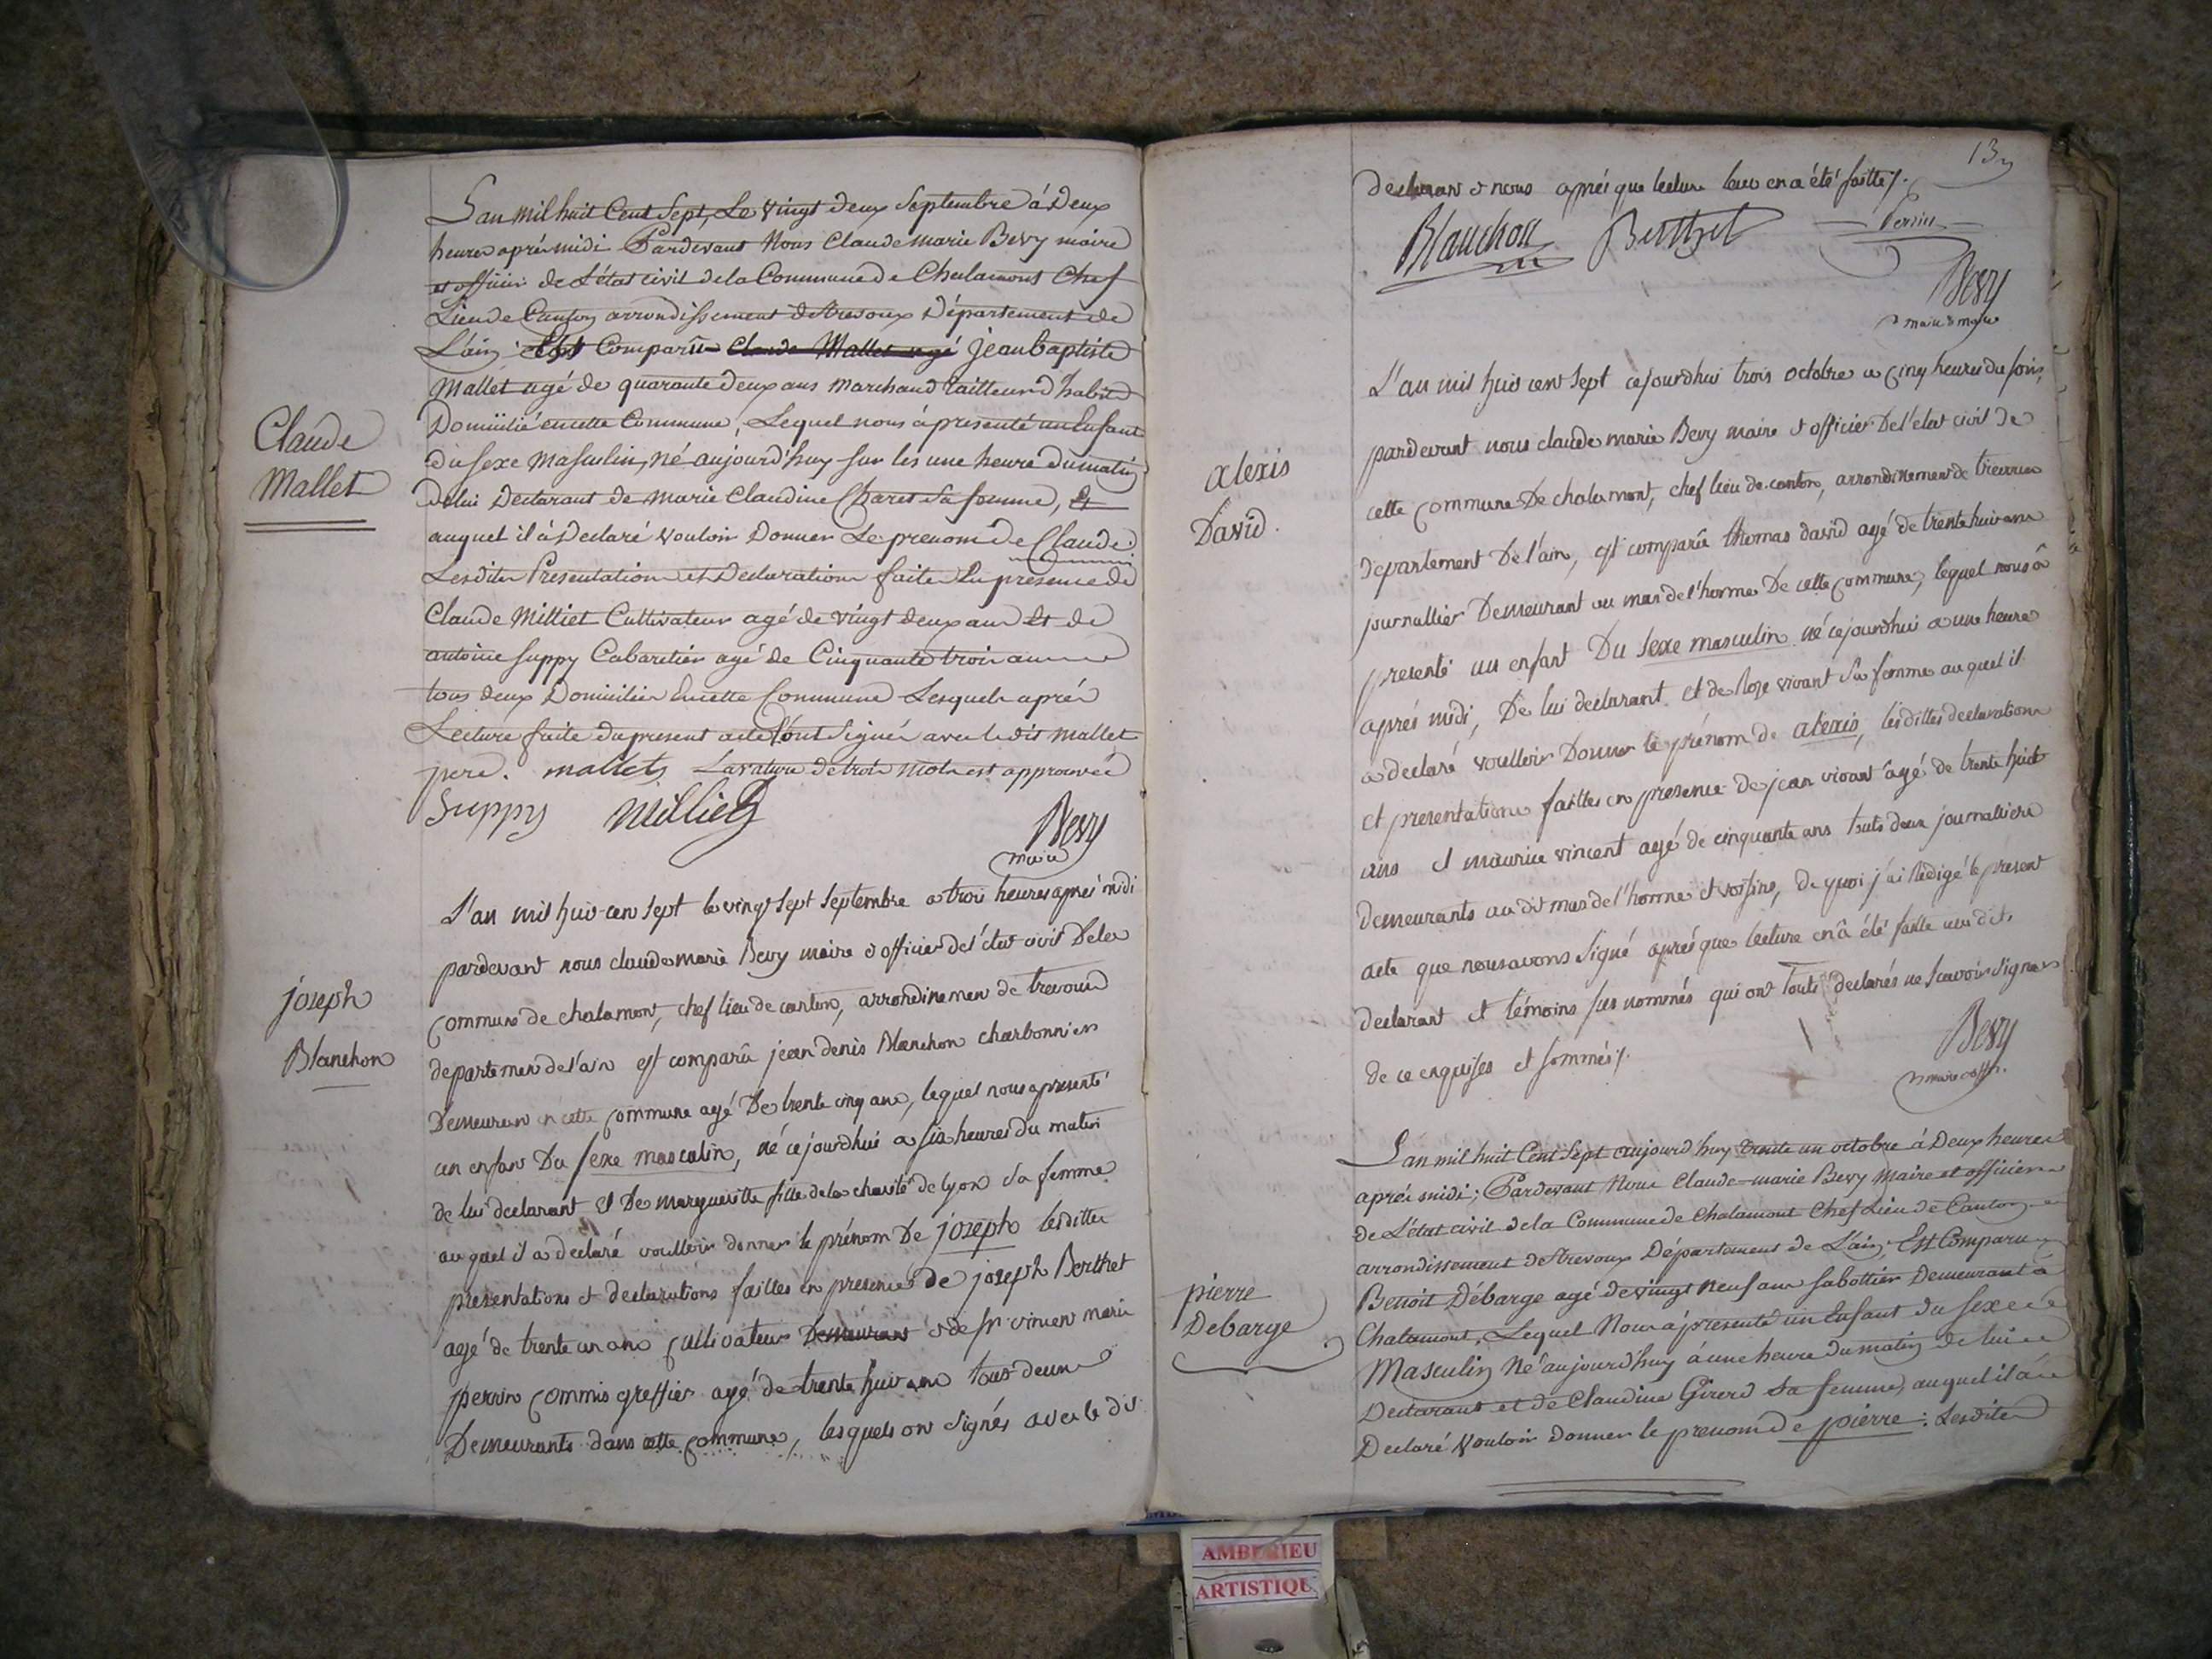 Claude
Mallet
L'an mil huit Cent Sept, Le vingt deux Septembre à Deux
heures aprés midi Pardevant Nous Claude marie Bevy maire
et officier de L'état civil de la Commune de Chalamont Chef
Lieu de Canton arrondissement de trevoux Département de
L'ain; Est Comparû Claude Mallet agé jean baptiste
Mallet agé de quarante deux ans Marchand tailleur d'habits
Domicilié en cette Commune, Lequel nous à presenté un Enfant
du sexe Masculin, né aujourd'huy sur les une heure du matin
de lui Declarant de Marie Claudine Charet Sa femme, Et
auquel il à Declaré Vouloir Donner Le prenom de Claude.
Lesdites Presentation et Declaration faites En presence de
Claude Milliet Cultivateur agé de vingt deux ans Et de
antoine Suppy Cabaretier agé de Cinquante trois ans
tous deux Domiciliés En cette Commune Lesquels aprés
Lecture faite du present acte l'ont Signés avec le dit Mallet
pere. mallet La rature de trois mots est approuvée
Suppy Milliet
Bevy
maire
joseph
Blanchon
L'an mil huit cen sept le vingt sept Septembre a trois heures aprés midi
pardevant nous claude marie Bevy maire & officier de l'état civil De la
commune de chalamont, chef lieu de canton, arrondissement de trevoux
departement de l'ain est comparû jean denis Blanchon charbonnier
Demeurant en cette commune agé De trente cinq ans, lequel nous a presenté
un enfant Du sexe masculin, né ce jourdhui a six heures du matin
de lui declarant & De margueritte fille de la charité de lyon Sa femme
au quel il a declaré voulloir donner le prénom De joseph lesdittes
presentations & declarations faittes en presence de joseph Berthet
agé de trente un ans cultivateur Demeurant & de fr vincent marie
perrin commis greffier agé de trente huit ans tous deux
Demeurants dans cette commune, lesquels ont signés avec le dit
13
declarant & nous aprés que lecture leur en a été faitte /.
Blanchon Berthet Perrin
Bevy
maire
alexis
David.
L'an mil huit cent sept cejourdhui trois octobre a cinq heures du soir,
pardevant nous claude marie Bevy maire & officier De l'etat civil de
cette commune De chalamont, chef lieu de canton, arrondissement de trevoux
departement De l'ain, est comparû thomas david agé de trente huit ans
journallier Demeurant au mas de l'horme De cette commune, lequel nous â
presenté un enfant Du sexe masculin né cejourdhui a une heure
aprés midi, De lui declarant et de loze vivant Sa femme au quel il
a declaré voulloir Donner le prénom de alexis, lesdittes declarations
et presentations faittes en presence de jean vivant agé de trente huit
ans & maurice vincent agé de cinquante ans touts deux journalliers
demeurants au dit mas de l'horme & voisins, de quoi j'ai Redigé le present
acte que nous avons Signé aprés que lecture en â été faitte aux dits
declarant et témoins sus nommés qui ont touts declarés ne scavoir signer
de ce enquises et sommés /.
Bevy
maire
pierre
Debarge
L'an mil huit Cent Sept aujourd'huy trente un octobre à Deux heures
aprés midi; Pardevant Nous Claude-marie Bevy Maire et officier
de L'état civil de la Commune de Chalamont Chef Lieu de Canton
arrondissement de Trevoux Département de L'ain, Est Comparu
Benoit Débarge agé de vingt neuf ans Sabottier Demeurant à
Chalamont, Lequel Nous à presenté un Enfant du sexe
Masculin Né aujourd'huy à une heure du matin de lui
Declarant et de Claudine Girerd Sa femme, auquel il à
Declaré Vouloir Donner le prenom de pierre: Lesdites
AMBERIEU
ARTISTIQU